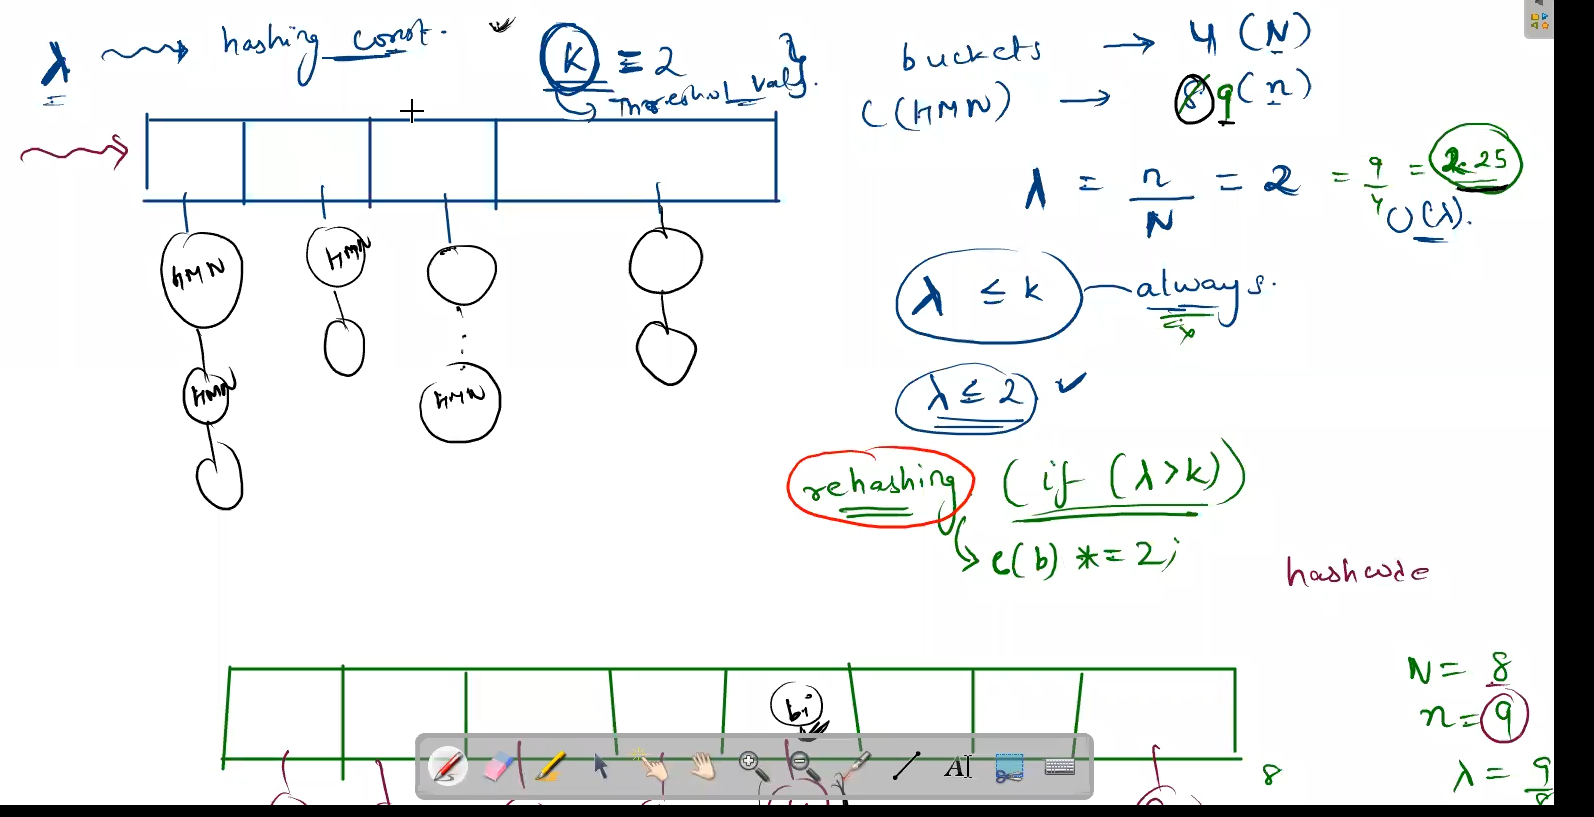 λ → hashing const.
K = 2
Threshold val
buckets → 4 (N)
C(HMN) → 8 9 (n)
λ = n/N = 2 = 9/4 = 2.25
O(λ).
HMN
HMN
HMN
HMN
λ ≤ k always.
λ ≤ 2
rehashing (if (λ>k))
c(b) *= 2;
hashcode
bi
N = 8
n = 9
λ = 9/8
8
AI